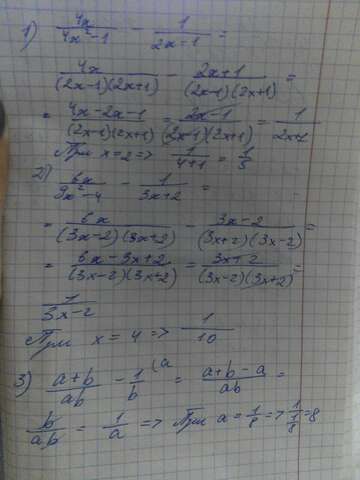 1) 4x/(4x²-1) - 1/(2x-1) =
4x/((2x-1)(2x+1)) - (2x+1)/((2x-1)(2x+1)) =
= (4x-2x-1)/((2x-1)(2x+1)) = (2x-1)/((2x-1)(2x+1)) = 1/(2x+1)
При x=2 => 1/(4+1) = 1/5
2) 6x/(9x²-4) - 1/(3x+2) =
= 6x/((3x-2)(3x+2)) - (3x-2)/((3x+2)(3x-2)) =
= (6x-3x+2)/((3x-2)(3x+2)) = (3x+2)/((3x-2)(3x+2)) =
1/(3x-2)
При x = 4 => 1/10
3) (a+b)/ab - 1/b (a = (a+b-a)/ab =
b/ab = 1/a => При a = 1/8 => 1/(1/8) = 8